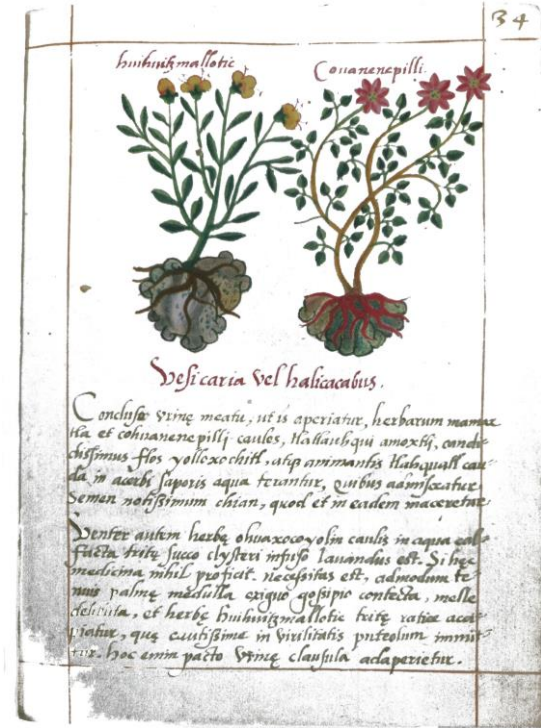 34
huihuitzmallotic
Couanenepilli.
Vesicaria vel halicacabus.
Concluso vrinę meatu, ut is aperiatur, herbarum mamax
tla et cohuanenepilli caules, tlatlauhqui amoxtli, candi-
dissimus flos yolloxochitl, atq animantis tlahquatl cau-
da in acerbi saporis aqua terantur, Quibus admisceatur
semen notissimum chian, quod et in eadem maceretur
Venter autem herbę ohuaxocoyolin caulis in aqua cal-
facta tritę succo clysteri infuso lauandus est. Si hęc
medicina nihil proficit necessitas est, admodum te
nuis palmę medulla exiguo gosipio contecta, melle
delibuta, et herbę huihuitzmallotic tritę radice acci-
piatur, quę cautissime in virilitatis puteolum immit
tur. hoc enim pacto vrinę clausula adaperietur.